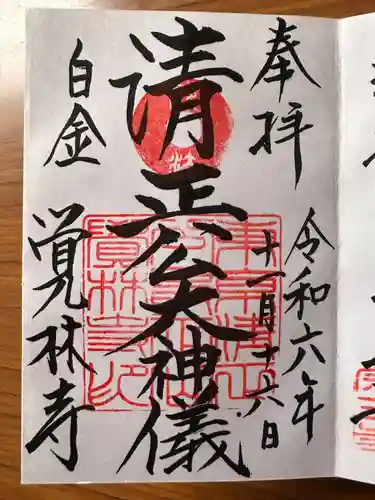 奉拝
令和六年
十一月十六日
清正公大神儀
白金
覚林寺